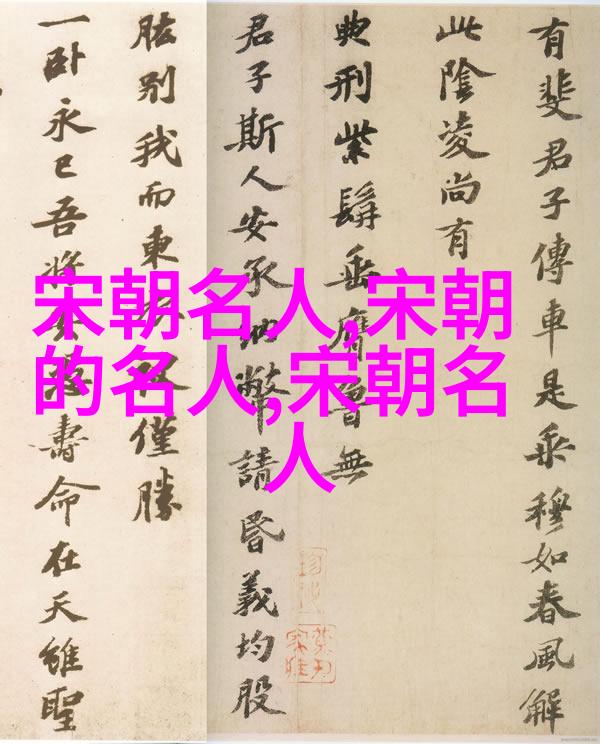 宋朝名人,宋朝
的名人,宋朝名
人
有斐君子傳車是乘穆如春風解
此陰凌尚有
典刑紫髯垂膺魯無
君子斯人安承納幣請昏義均股
肱別我而東袂僅勝
一卧永已吾將壽命在天雖聖